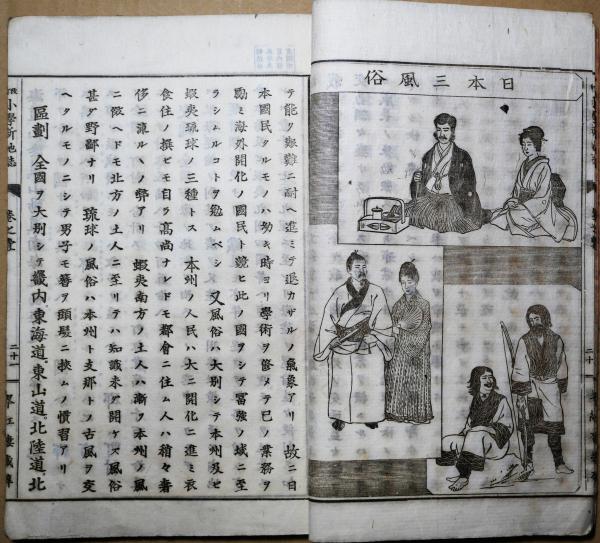 日本三風俗
テ能ク艱難ニ耐ヘ進ミテ退カザルノ氣象アリ 故ニ日
本國民タルモノハ幼キ時ヨリ學術ヲ修メテ己ノ業務ヲ
勵ミ海外開化ノ國民ト競ヒ此ノ國ヲシテ富強ノ域ニ至
ラシムルコトヲ勉ムベシ 又風俗ヲ大別シテ本州及ビ
蝦夷琉球ノ三種トス 本州ノ人民ハ大ニ開化ニ進ミ衣
食住ノ撰ビモ自ラ高尚ナレドモ都會ニ住ム人ハ稍々奢
侈ニ流ルヽノ弊アリ 蝦夷南方ノ土人ハ漸ク本州ノ風
ニ傚ヘドモ北方ノ土人ニ至リテハ知識未ダ開ケズ風俗
甚ダ野鄙ナリ 琉球ノ風俗ハ本州ト支那トノ古風ヲ交
ヘタルモノニシテ男子モ簪ヲ頭髪ニ挾ムノ慣習アリ
區劃 全國ヲ大別シテ畿内、東海道、東山道、北陸道、北
小學新地誌 卷之壹 二十一